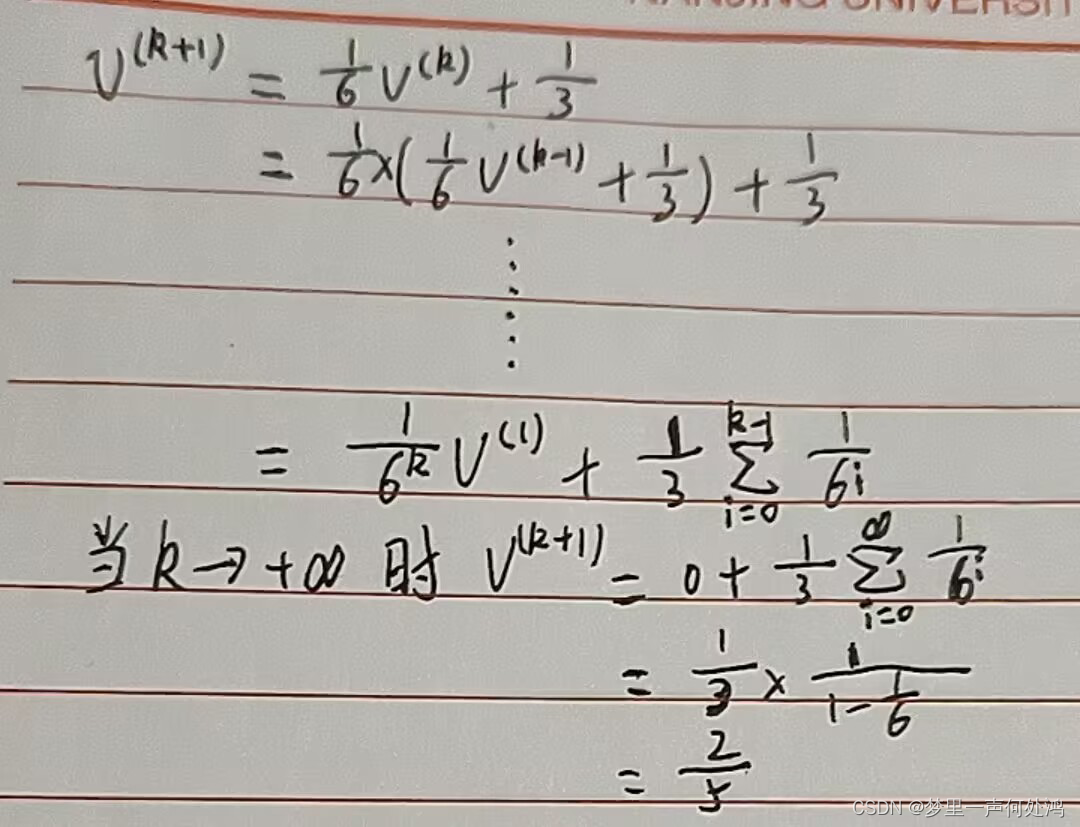 NANJING UNIVERSIT
V^(k+1) = 1/6 V^(k) + 1/3
= 1/6 × (1/6 V^(k-1) + 1/3) + 1/3
⋮
= 1/6^k V^(1) + 1/3 ∑_{i=0}^{k-1} 1/6^i
当 k → +∞ 时 V^(k+1) = 0 + 1/3 ∑_{i=0}^{∞} 1/6^i
= 1/3 × 1/(1 - 1/6)
= 2/5
CSDN @梦里一声何处鸿